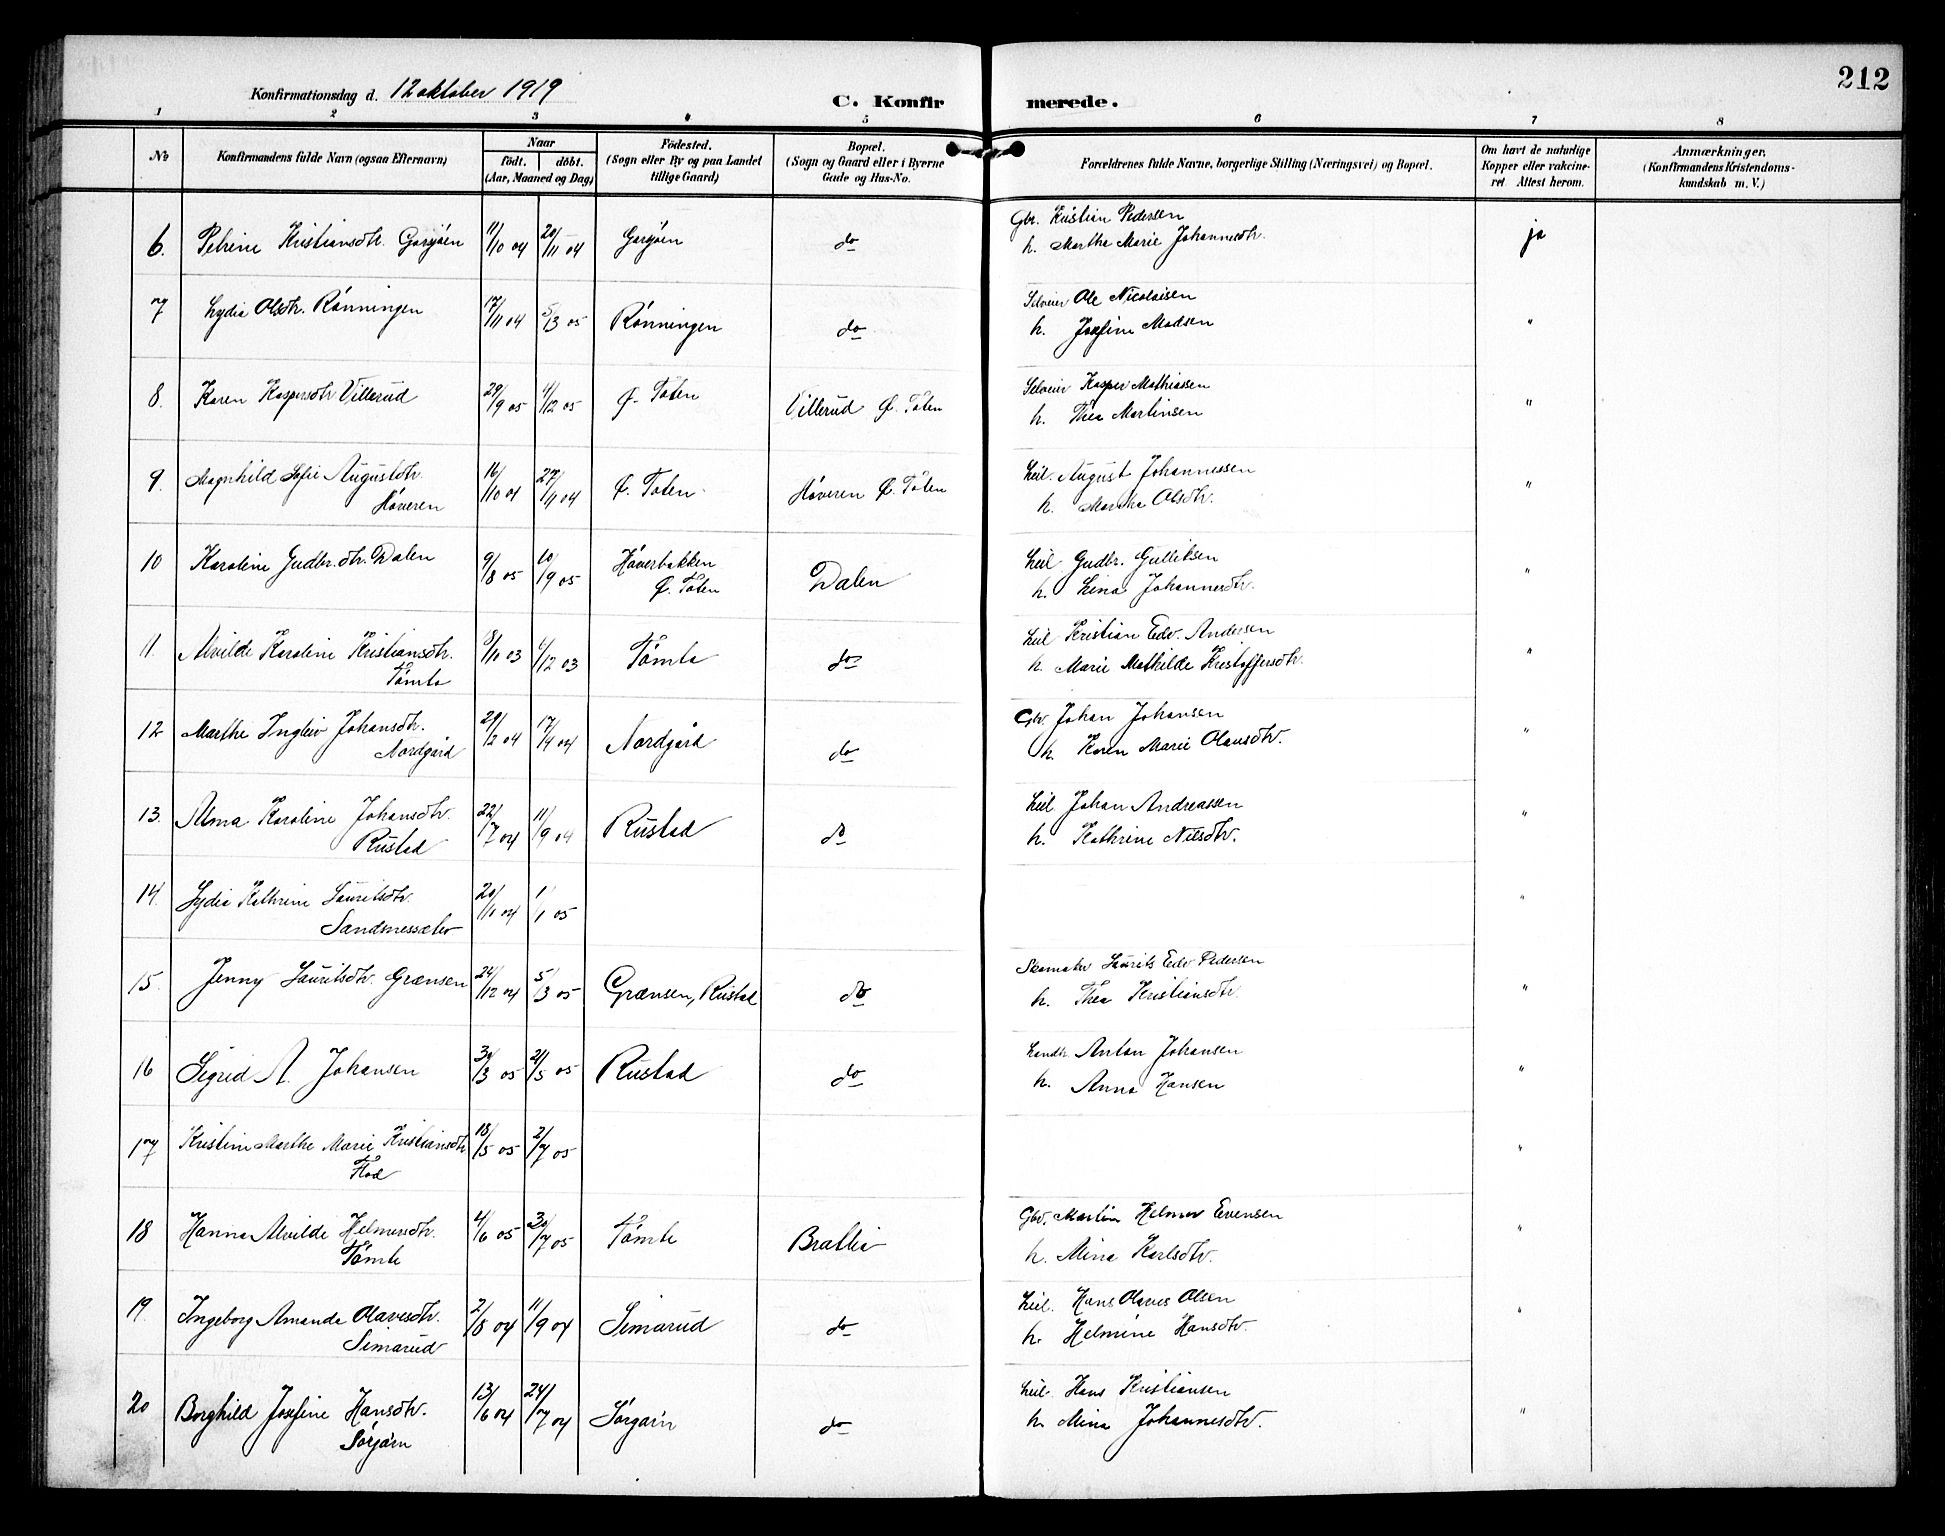 212
Konfirmationsdag d. 12 oktober 1919
C. Konfirmerede.
1 2 3 4 5 6 7 8
No Konfirmandens fulde Navn (ogsaa Efternavn) Naar födt. döbt. (Aar, Maaned og Dag) Födested. (Sogn eller By og paa Landet tillige Gaard) Bopæl. (Sogn og Gaard eller i Byerne Gade og Hus-No. Forældrenes fulde Navne, borgerlige Stilling (Næringsvei) og Bopæl. Om havt de naturlige Kopper eller vakcineret Attest herom. Anmærkninger, (Konfirmandens Kristendomskundskab m. V.)
6. Petrine Kristiansdtr. Gaasjøen 11/10 04 20/11 04 Gaasjøen do Gbr. Kristian Pedersen ja
h. Marthe Marie Johannesdtr.
7 Lydia Olsdtr. Rønningen 17/11 04 5/3 05 Rønningen do Selveier Ole Nicolaisen "
h. Josefine Madsen
8. Karen Kaspersdtr Villerud 29/9 05 4/12 05 Ø. Toten Villerud Ø. Toten Selveier Kasper Mathiassen "
h. Thea Martinsen
9. Magnhild Sofie Augustdtr. 16/10 04 27/11 04 Ø. Toten Høveren Ø. Toten Leil. August Johannessen "
Høveren h. Marthe Olsdtr.
10 Karoline Gudbr.dtr. Dalen 9/8 05 10/9 05 Høverbakken Dalen Leil Gudbr. Gulliksen "
Ø. Toten h. Lina Johannesdtr.
11. Alvilde Karoline Kristiansdtr. 8/11 03 4/12 03 Tømte do Leil Kristian Edv. Andersen "
Tømte h. Marie Mathilde Kristoffersdtr.
12 Marthe Inglev Johansdtr. 29/2 04 17/4 04 Nordgård do Gbr. Johan Johansen "
Nordgård h. Karen Marie Olausdtr.
13. Alma Karoline Johansdtr. 22/7 04 11/9 04 Rustad do Leil Johan Andreassen "
Rustad h. Kathrine Nilsdtr.
14. Lydia Kathrine Lauritsdtr. 20/11 04 1/1 05 "
Sandnessæter
15. Jenny Lauritsdtr. Grænsen 24/12 04 5/3 05 Grænsen, Rustad do Skomaker Laurits Edv Pedersen "
h. Thea Kristiansdtr.
16 Sigrid A. Johansen 30/3 05 21/5 05 Rustad do Landh. Anton Johansen "
h. Anna Hansen
17 Kristine Marthe Marie Kristiansdtr 18/5 05 2/7 05 "
18 Hanna Alvilde Helmersdtr. 4/6 05 30/7 05 Tømte Bratlia Gbr. Martin Helmer Evensen "
Tømte h. Mina Karlsdtr.
19. Ingeborg Amanda Olavesdtr. 2/8 04 11/9 04 Simarud do Leil. Hans Olaves Olsen "
Simarud h. Helmine Hansdtr.
20 Borghild Josefine Hansdtr. 13/6 04 24/7 04 do Leil. Hans Kristiansen "
h. Mina Johannesdtr.